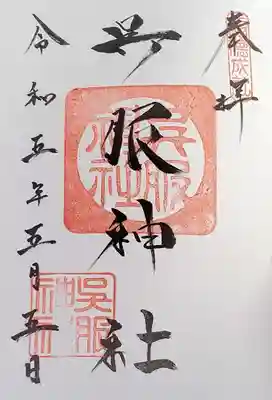 奉拝
呉服神社
令和五年五月五日
呉服神社
呉服神社